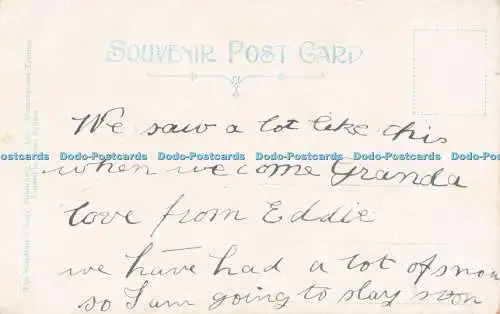 SOUVENIR POST CARD
We saw a lot like this
Dodo-Postcards Dodo-Postcards Dodo-Postcards Dodo-Postcards Dodo-Postcards
when we come Granda
love from Eddie
we have had a lot of snow
so I am going to slay soon